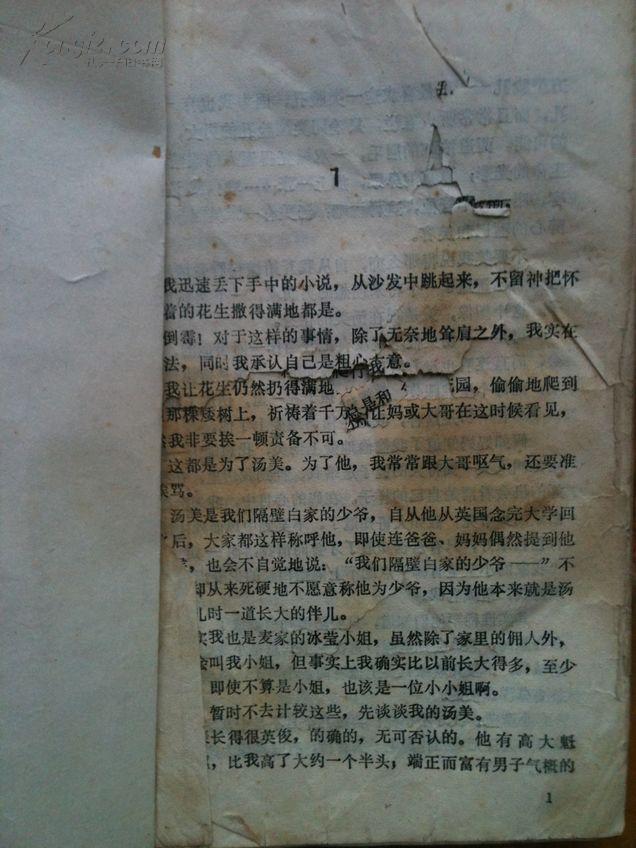 1
我迅速丢下手中的小说，从沙发中跳起来，不留神把怀
着的花生撒得满地都是。
倒霉！对于这样的事情，除了无奈地耸肩之外，我实在
法，同时我承认自己是粗心大意。
我让花生仍然扔得满地 园，偷偷地爬到
那棵矮树上，祈祷着千万 让妈或大哥在这时候看见，
我非要挨一顿责备不可。
这都是为了汤美。为了他，我常常跟大哥呕气，还要准
骂。
汤美是我们隔壁白家的少爷，自从他从英国念完大学回
后，大家都这样称呼他，即使连爸爸、妈妈偶然提到他
，也会不自觉地说：“我们隔壁白家的少爷——”不
却从来死硬地不愿意称他为少爷，因为他本来就是汤
儿时一道长大的伴儿。
实我也是麦家的冰莹小姐，虽然除了家里的佣人外，
叫我小姐，但事实上我确实比以前长大得多，至少
即使不算是小姐，也该是一位小小姐啊。
暂时不去计较这些，先谈谈我的汤美。
长得很英俊，的确的，无可否认的。他有高大魁
，比我高了大约一个半头，端正而富有男子气概的
1